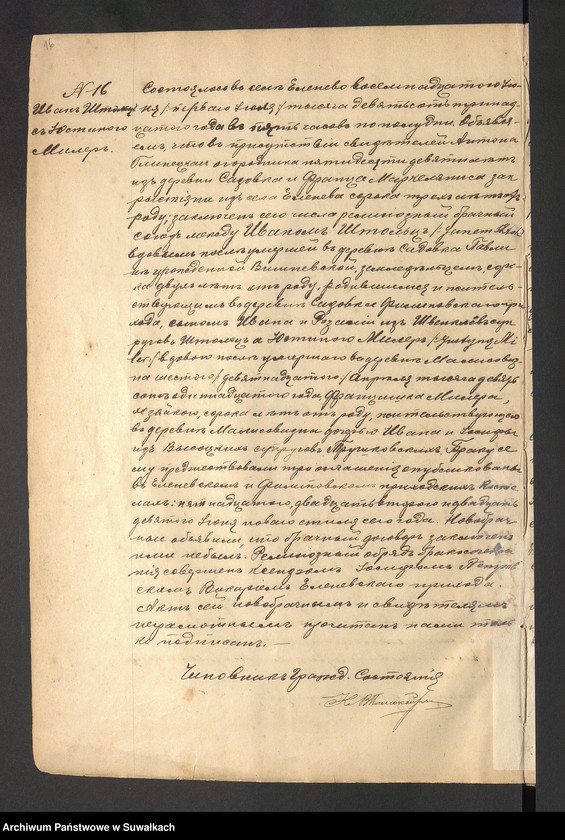 16
N 16
Иванъ Штольцъ
съ Юстиною
Милеръ.
Состоялось въ селѣ Еленево восемнадцатаго Iю-
ня /:перваго Iюля:/ тысяча девятьсотъ тринад-
цатаго года въ пять часовъ по полудни. Объявля-
емъ, что въ присутствіи свидѣтелей Антона
огородника пятидесяти девяти лѣтъ
изъ деревни Садовка и Франца Марчеляниса
изъ села Еленева сорока трехъ лѣтъ отъ
роду, заключенъ сего числа религіозный брачный
союзъ между Иваномъ Штольцъ
вдовцемъ послѣ умершей въ деревнѣ Садовка
урожденной Вишневской, земледѣльцемъ, соро-
ка двухъ лѣтъ отъ роду, родившимся и житель-
ствующимъ въ деревнѣ Садовка Филиповскаго при-
хода, сыномъ Ивана и Розаліи изъ суп-
руговъ Штольцъ а Юстиною Милеръ /:Justyna Mi-
ler:/ вдовою послѣ умершаго въ деревнѣ Малесовиз-
на шестого /:девятнадцатаго:/ Апрѣля тысяча девять-
сотъ одиннадцатаго года, Францишка Милера,
сорока лѣтъ отъ роду, жительствующею
въ деревнѣ Малесовизна дочерью Ивана и Iосифы
изъ Высоцкихъ супруговъ Трушковскихъ. Браку се-
му предшествовали три оглашенія опубликованныя
въ Еленевскомъ и Филиповскомъ приходскихъ Косте-
лахъ: пятнадцатаго, двадцать второго и двадцать
девятого Iюня новаго стиля сего года. Новобрач-
ные объявили что брачный договоръ заключенъ
ними небылъ. Религіозный обрядъ бракосочета-
нія совершенъ Ксендзомъ Iосифомъ
Викаріемъ Еленевскаго прихода.
Актъ сей новобрачнымъ и свидѣтелямъ
неграмотнымъ прочитанъ нами толь-
ко подписанъ. —
Чиновникъ Гражд. Состоянія
Archiwum Państwowe w Suwałkach